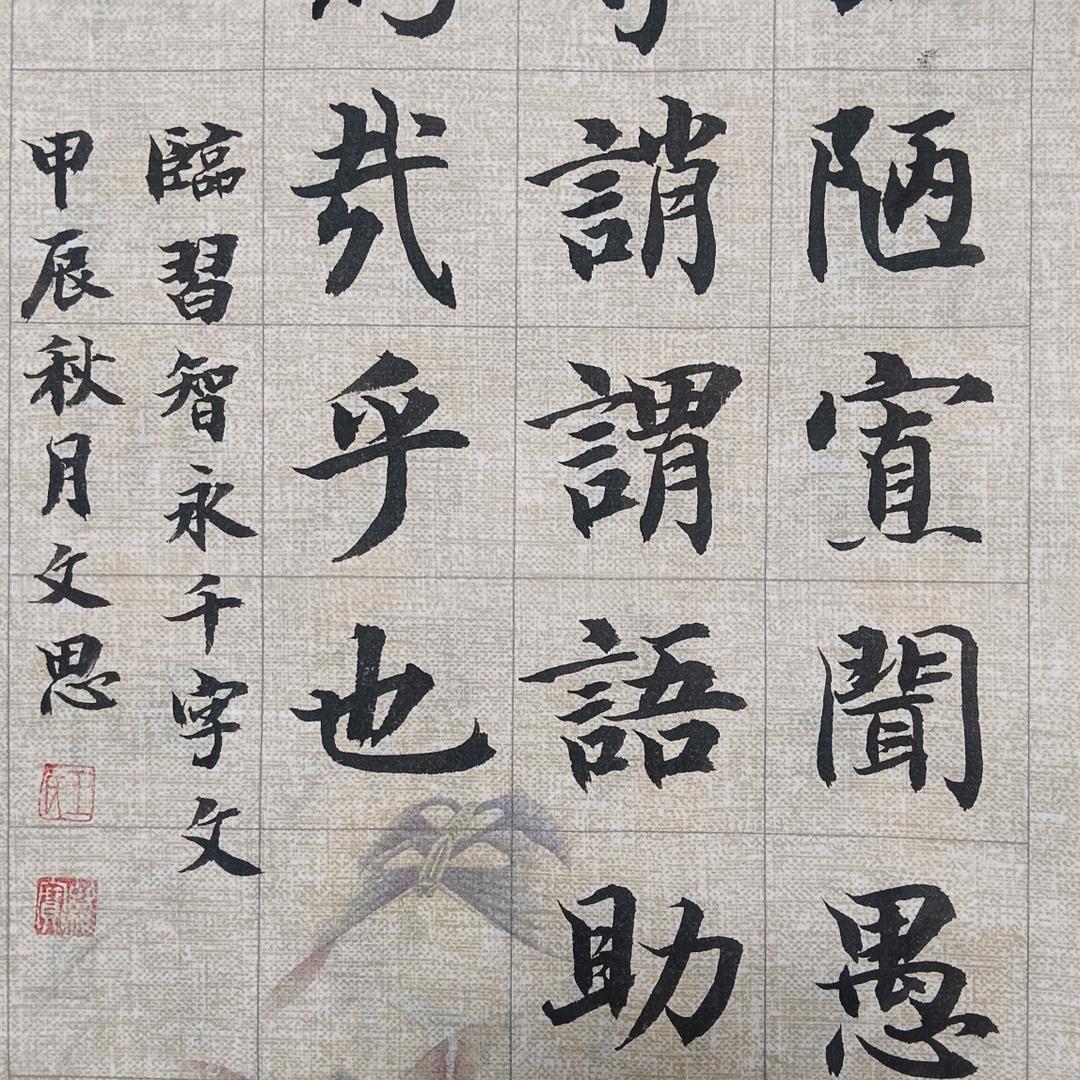 陋寡聞愚
誚謂語助
哉乎也
臨習智永千字文
甲辰秋月文思